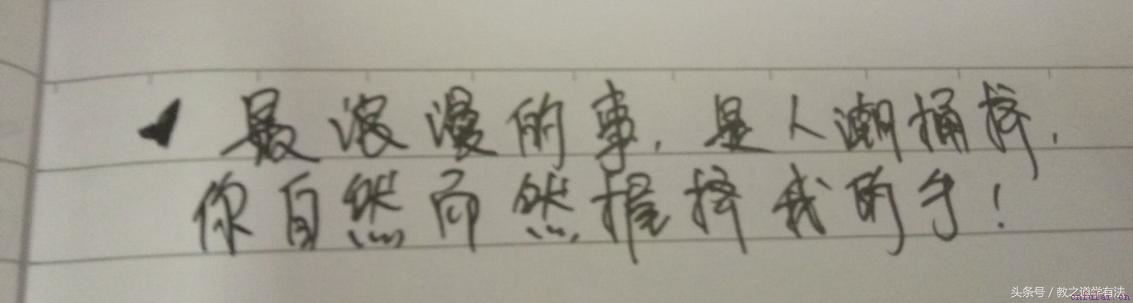 最浪漫的事,是人潮捅挤,
你自然而然握挤我的手!
头条号/教之道学有法